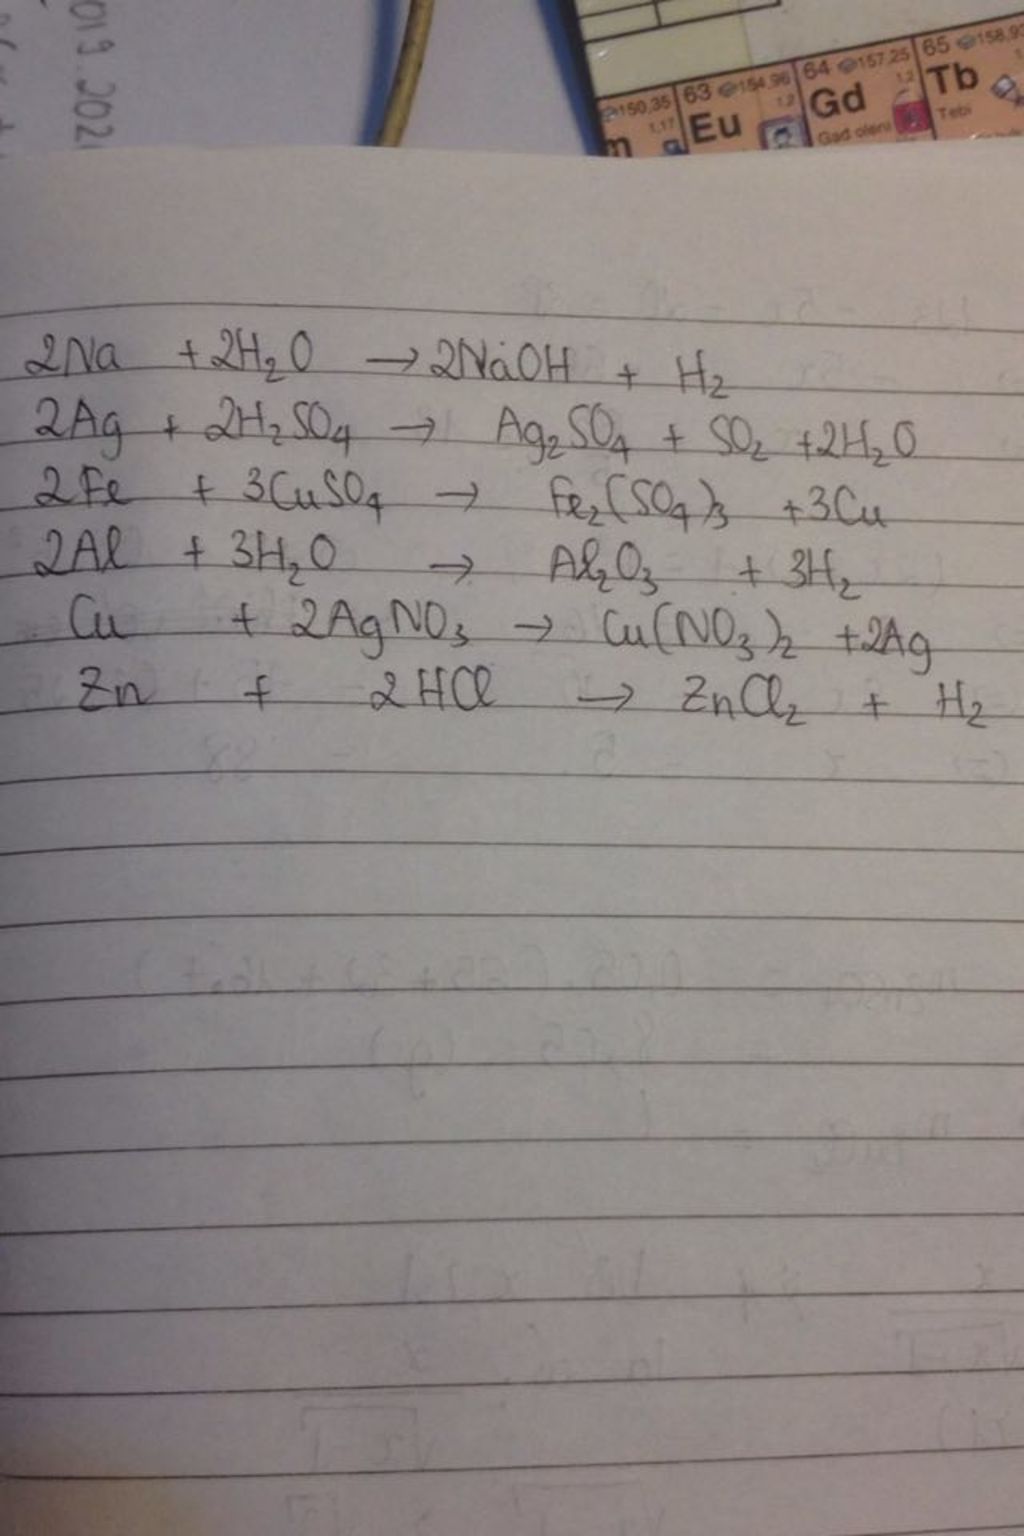 019.202
150,35 63 154,96 64 157,25 65 158,93
1,17 1,2 1,2
m Eu Gd Tb
Tebi
2Na + 2H₂O → 2NaOH + H₂
2Ag + 2H₂SO₄ → Ag₂SO₄ + SO₂ + 2H₂O
2Fe + 3CuSO₄ → Fe₂(SO₄)₃ + 3Cu
2Al + 3H₂O → Al₂O₃ + 3H₂
Cu + 2AgNO₃ → Cu(NO₃)₂ + 2Ag
Zn + 2HCl → ZnCl₂ + H₂